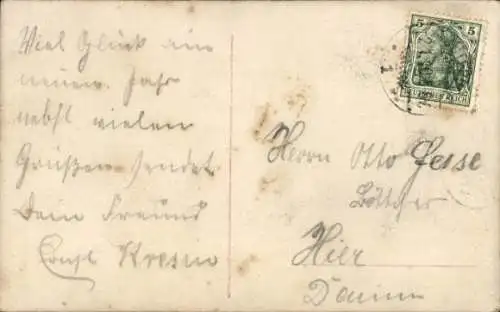 Viel Glück im
neuen Jahr
nebst vielen
Grüßen sendet
Dein Freund
Ernst Kresin
5 5
DEUTSCHES REICH
1
Herrn Otto Jesse
Böttcher
Hier